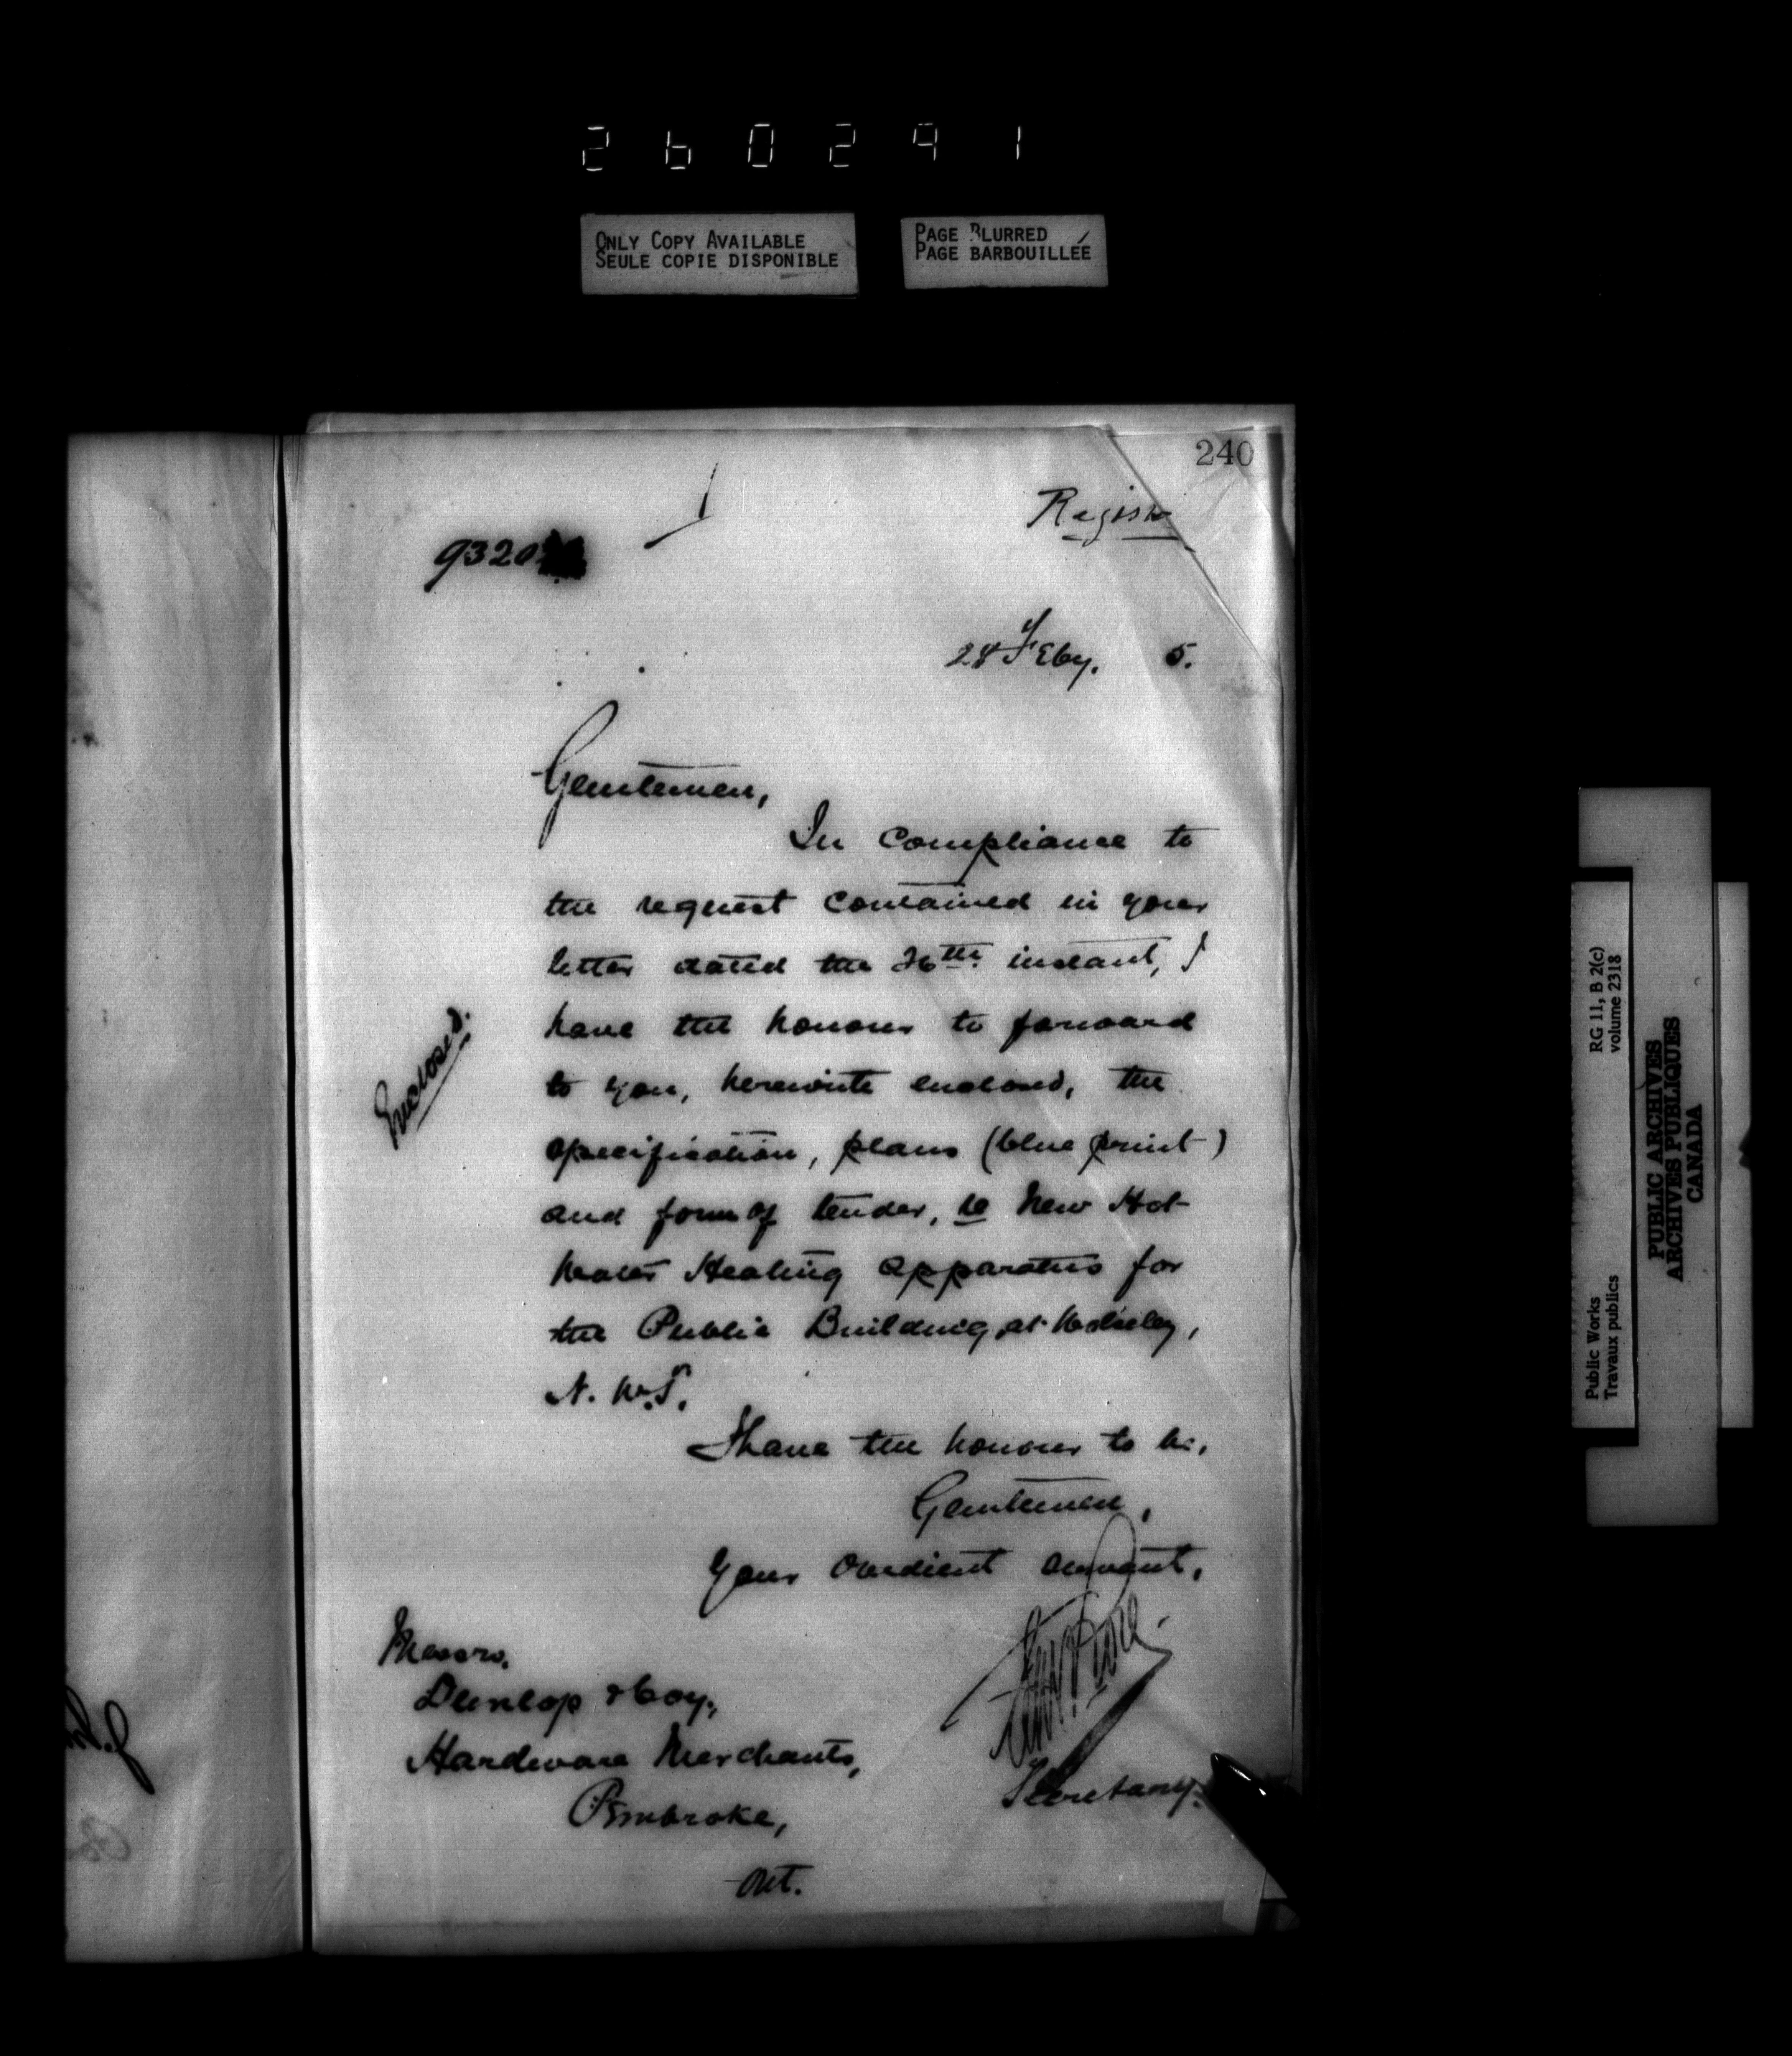 260291
ONLY COPY AVAILABLE
SEULE COPIE DISPONIBLE
PAGE BLURRED
PAGE BARBOUILLÉE
240
Regist
9320
28 Feby. 5.
Gentlemen,
In compliance to
the request contained in your
letter dated the 26th. instant, I
have the honour to forward
to you, herewith enclosed, the
specification, plans (blue print)
and form of tender, re New Hot
Water Heating apparatus for
the Public Building, at Wolseley,
N. W. T.
Enclosed.
I have the honour to be,
Gentlemen,
Your obedient servant,
Secretary.
Messrs.
Dunlop & Coy.,
Hardware Merchants,
Pembroke,
Ont.
RG 11, B 2(c)
volume 2318
Public Works
Travaux publics
PUBLIC ARCHIVES
ARCHIVES PUBLIQUES
CANADA